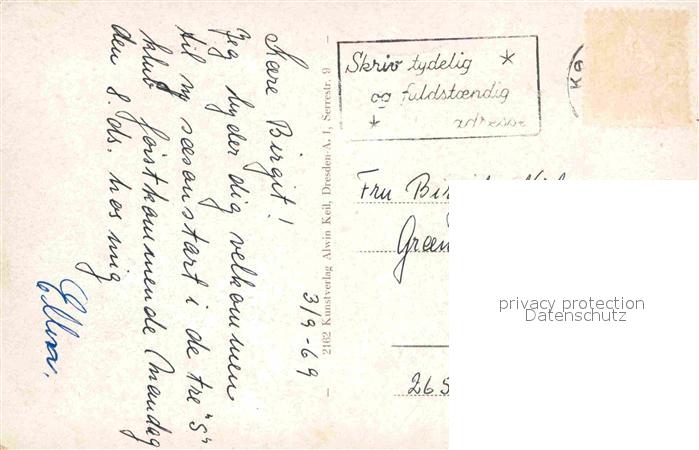 3/9-69
Kære Birgit!
Jeg byder dig velkommen
til ny sæsonstart i de tre "S"
klub førstkommende Mandag
den 8. ds. hos mig
Ellen.
2162 Kunstverlag Alwin Keil, Dresden-A. 1, Serrestr. 9
Skriv tydelig
og fuldstændig
adresse
KØ
Fru
26
privacy protection
Datenschutz